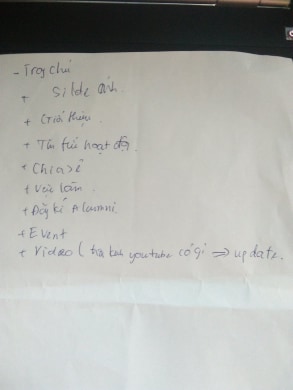 - Trang chủ
+ Silde ảnh
+ Giới thiệu
+ Tin tức hoạt độ
+ Chia sẻ
+ Việc làm
+ Đăng kí Alumni
+ Event
+ Video ( youtube có gì => update.